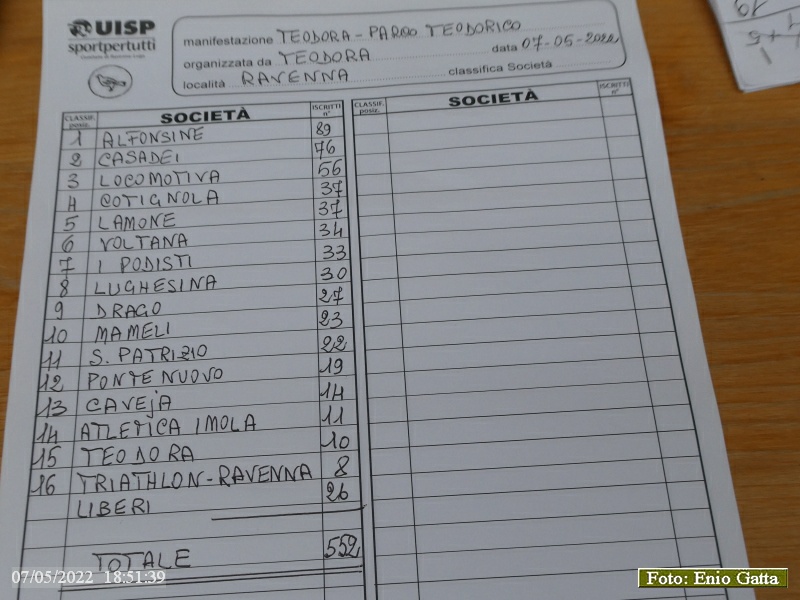 UISP
sportpertutti
manifestazione TEODORA - PARCO TEODORICO
organizzata da TEODORA data 07-05-2022
località RAVENNA classifica Società
CLASSIF. posiz. SOCIETÀ ISCRITTI n° CLASSIF. posiz. SOCIETÀ ISCRITTI n°
1 ALFONSINE 89
2 CASADEI 76
3 LOCOMOTIVA 56
4 COTIGNOLA 37
5 LAMONE 37
6 VOLTANA 34
7 I PODISTI 33
8 LUGHESINA 30
9 DRAGO 27
10 MAMELI 23
11 S. PATRIZIO 22
12 PONTE NUOVO 19
13 CAVEJA 14
14 ATLETICA IMOLA 11
15 TEODORA 10
16 TRIATHLON-RAVENNA 8
LIBERI 26
TOTALE 552
07/05/2022 18:51:39
Foto: Enio Gatta